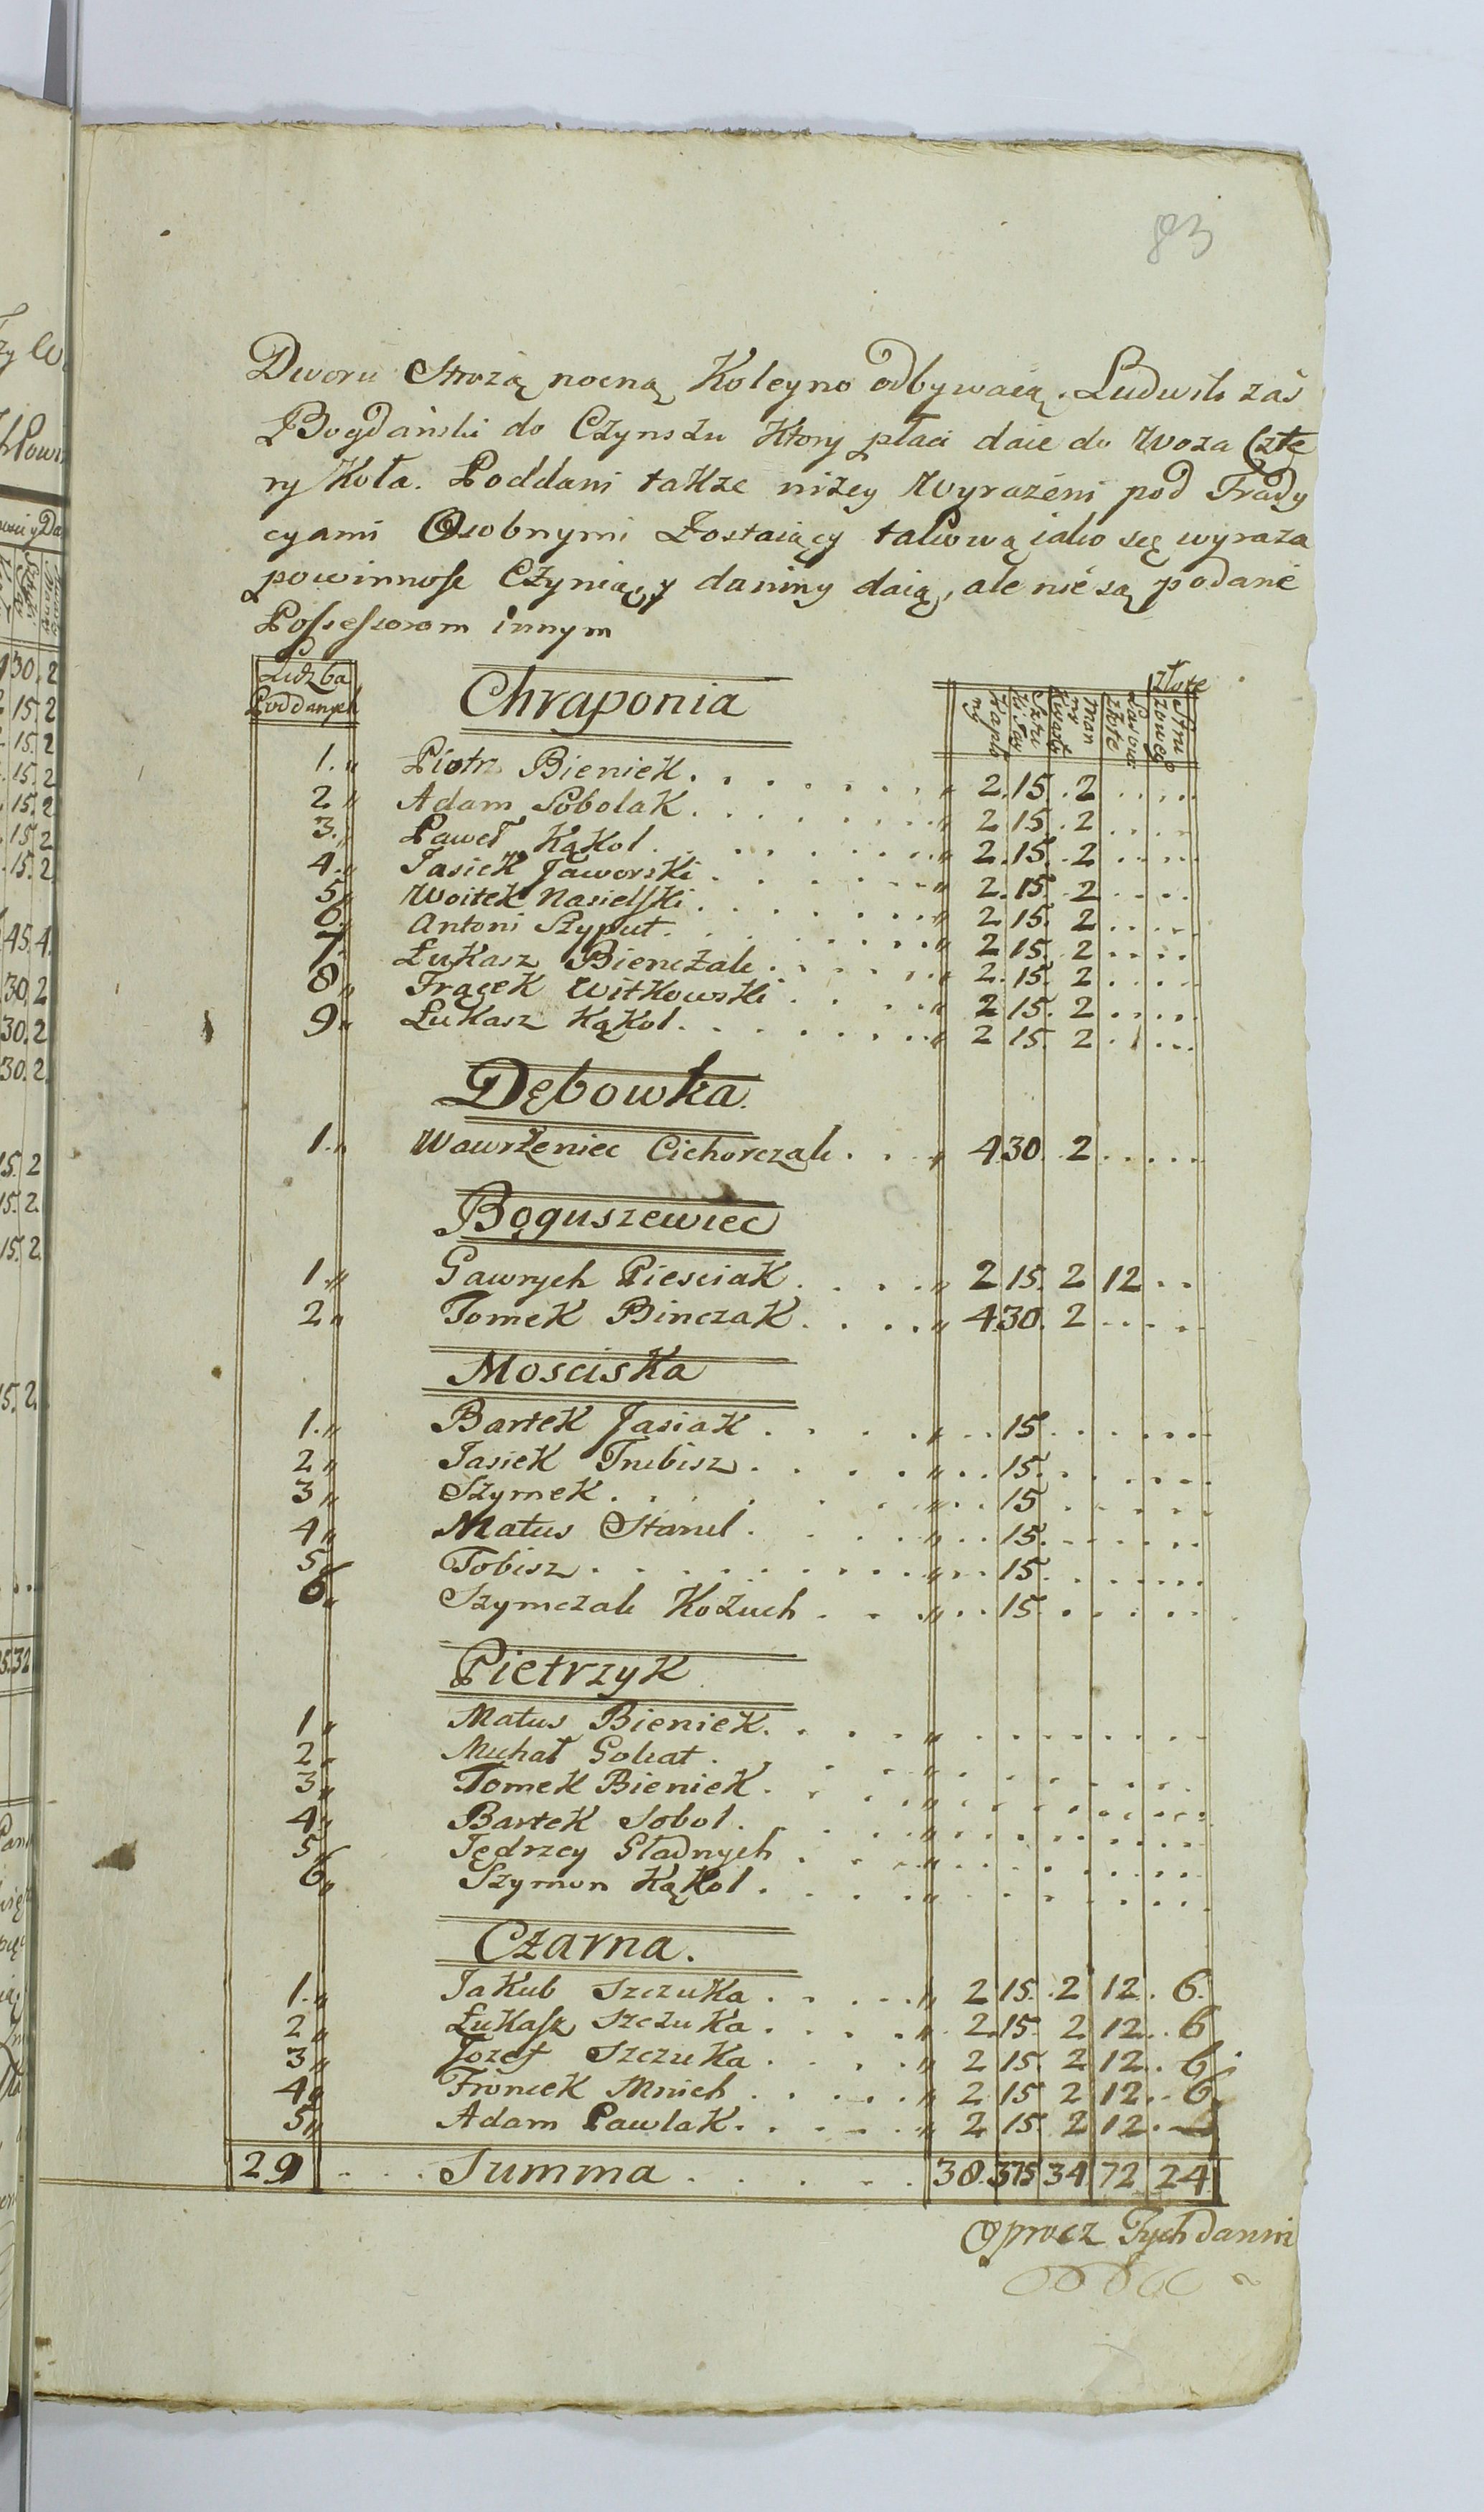 83
Dworu Strożą nocną Koleyno odbywaią. Ludwik zaś
Bogdański do Czynszu Ktory płaci daie do Woza Czte
ry Koła. Poddani takze niżey Wyrażeni pod Trady
cyami Osobnymi Zostaiący takową iako się wyraza
powinnosc Czynią, y daniny daią, ale nie są podane
Possessorom innym
Liczba Poddanych
Chraponia
Kapło ny
Kwart ny
Złote
1. Piotr Bieniek . . . . . . . 2. 15. 2 . . . . .
2 Adam Sobolak . . . . . . . 2 15. 2 . . . . .
3. Paweł Kąkol . . . . . . . 2. 15. 2 . . . . .
4. Jasiek Jaworski . . . . . . 2. 15 2 . . . . .
5 Woitek Nasielski . . . . . . 2 15. 2 . . . . .
6. Antoni Szyput . . . . . . 2 15. 2 . . . . .
7. Łukasz Bienczak . . . . . . 2. 15. 2 . . . . .
8 Frącek Witkowski . . . . . 2 15. 2 . . . . .
9 Łukasz Kąkol . . . . . . . 2 15. 2 . . . . .
Dębowka.
1. Wawrzeniec Cichorczak . . . 4. 30. 2 . . . . .
Boguszewiec
1. Gawrych Piesciak . . . . 2 15. 2 12 . .
2 Tomek Binczak . . . . . 4. 30. 2 . . . . .
Mosciska
1. Bartek Jasiak . . . . . . . 15 . . . . . . .
2 Jasiek Trubisz . . . . . . . 15. . . . . . .
3 Szymek . . . . . . . . 15 . . . . . .
4 Matus Stanel . . . . . . 15. . . . . . .
5 Tobisz . . . . . . . . . . 15 . . . . . . .
6 Szymczak Kożuch . . . . . 15 . . . . . .
Pietrzyk
1 Matus Bieniek . . . . . . . . . . . .
2 Michał Golcat . . . . . . . . . . .
3 Tomek Bieniek . . . . . . . . . . . .
4 Bartek Sobol . . . . . . . . . . . .
5 Jędrzey Gładnych . . . . . . . . . . .
6 Szymon Kąkol . . . . . . . . . . .
Czarna.
1. Jakub Szczuka . . . . . 2 15. 2 12 . 6.
2 Łukasz Szczuka . . . . . 2. 15. 2 12 . . 6
3 Jozef Szczuka . . . . . 2 15. 2 12 . . 6
4 Froncek Mnich . . . . . 2 15 2 12 . . 6
5 Adam Pawlak . . . . . . 2 15. 2 12 . —
29 . . . Summa . . . . . 38. 375 34 72 24
Oprocz Tych danin